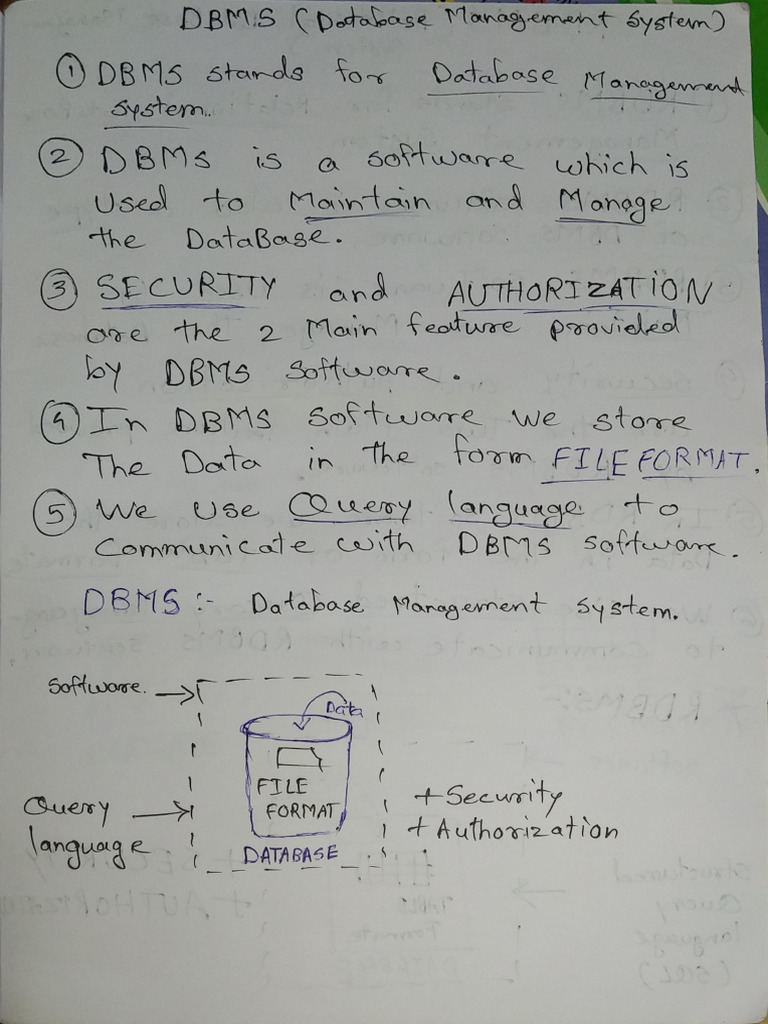 DBMS (Database Management System)
① DBMS stands for Database Management
System.
② DBMS is a software which is
Used to Maintain and Manage
the DataBase.
③ SECURITY and AUTHORIZATION
are the 2 Main feature provided
by DBMS Software.
④ In DBMS Software we store
The Data in the form FILE FORMAT.
⑤ We use Query language to
Communicate with DBMS software.
DBMS :- Database Management System.
Software.
Data
FILE
FORMAT
DATABASE
Query
language
+ Security
+ Authorization